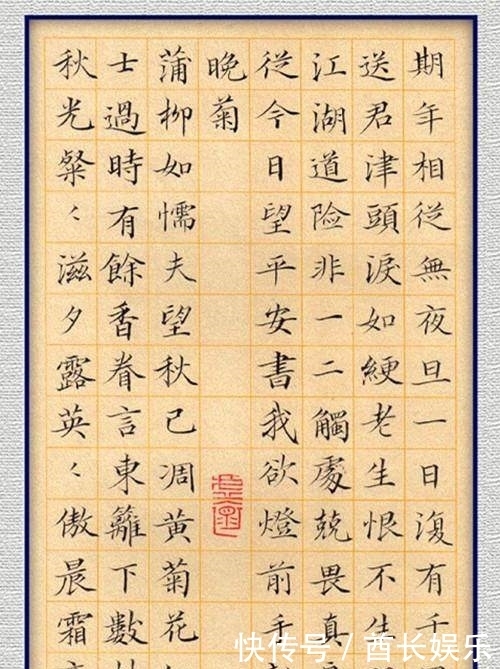 期年相從無夜旦一日復有千
送君津頭淚如綆老生恨不生
江湖道险非一二觸處兢畏真
從今日望平安書我欲燈前手
晚菊
蒲柳如懦夫望秋已凋黃菊花
士過時有餘香眷言東籬下數
秋光粲〻滋夕露英〻傲晨霜
快传号 / 酋长娱乐